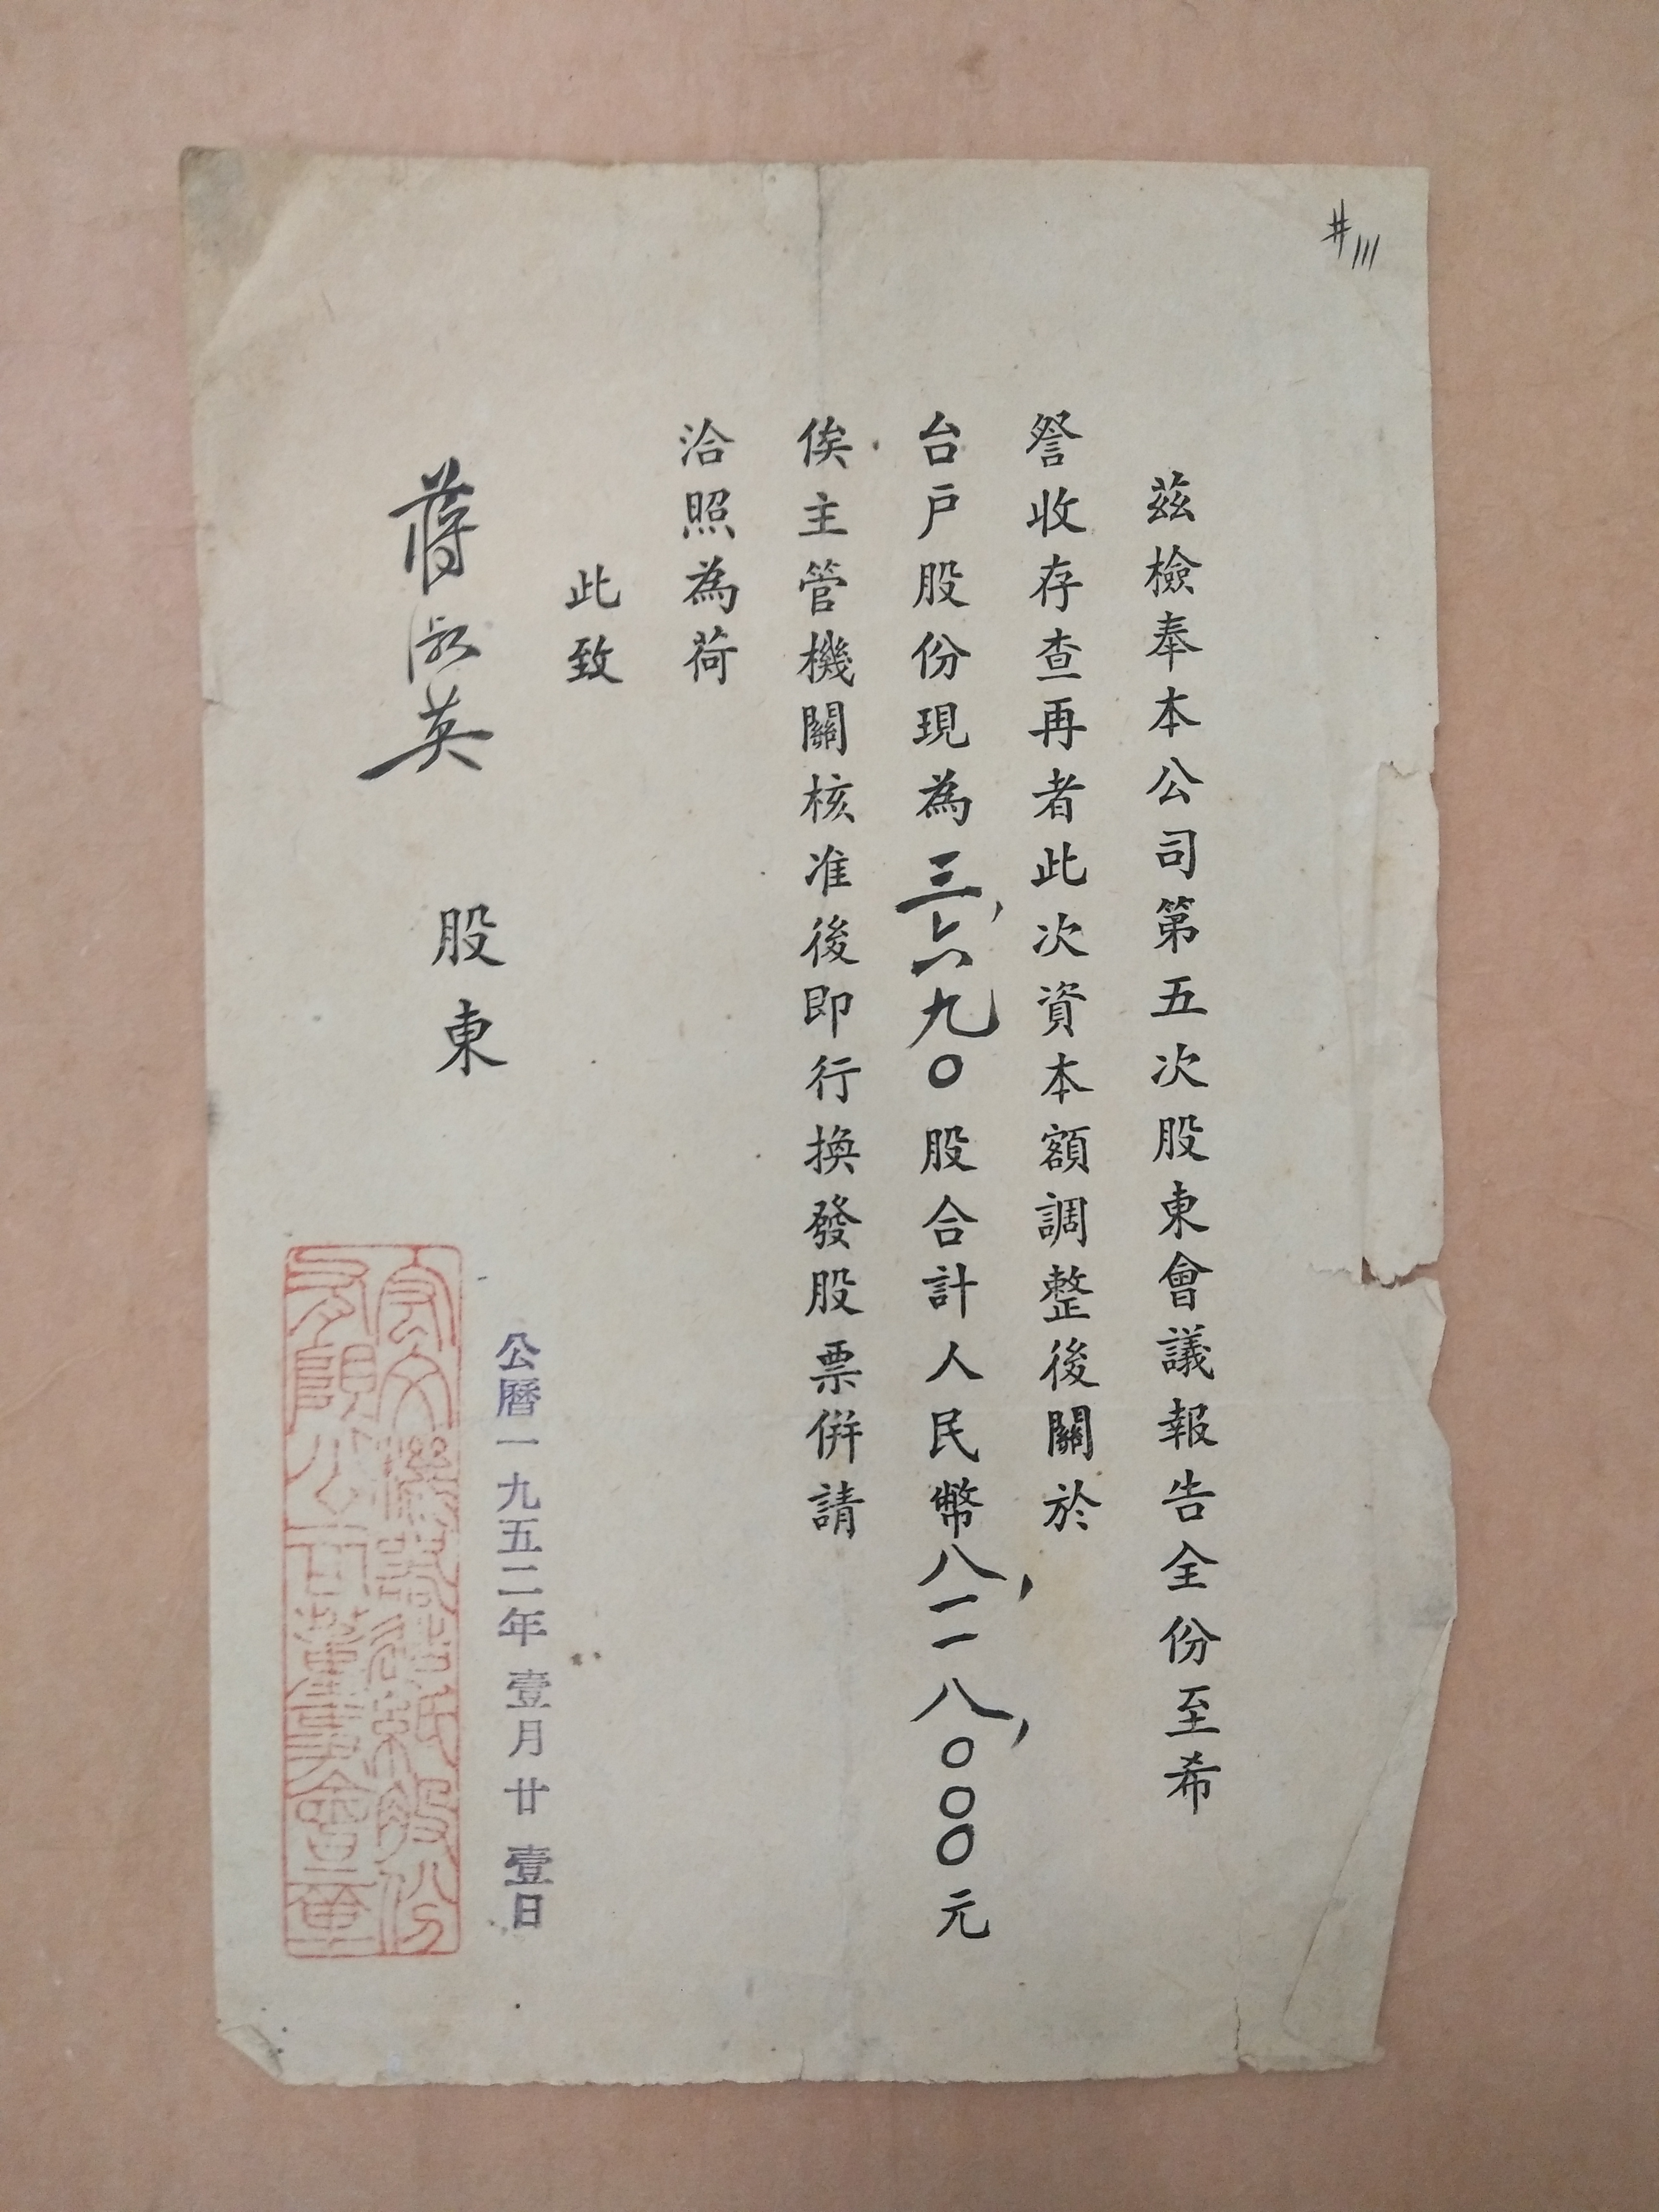 #111
茲檢奉本公司第五次股東會議報告全份至希
詧收存查再者此次資本額調整後關於
台戶股份現為三,六九〇股合計人民幣八,一一八,〇〇〇元
俟主管機關核准後即行換發股票併請
洽照為荷
此致
蔣淑英 股東
公曆一九五二年壹月廿壹日
宏文機器造紙股份
有限公司董事會章